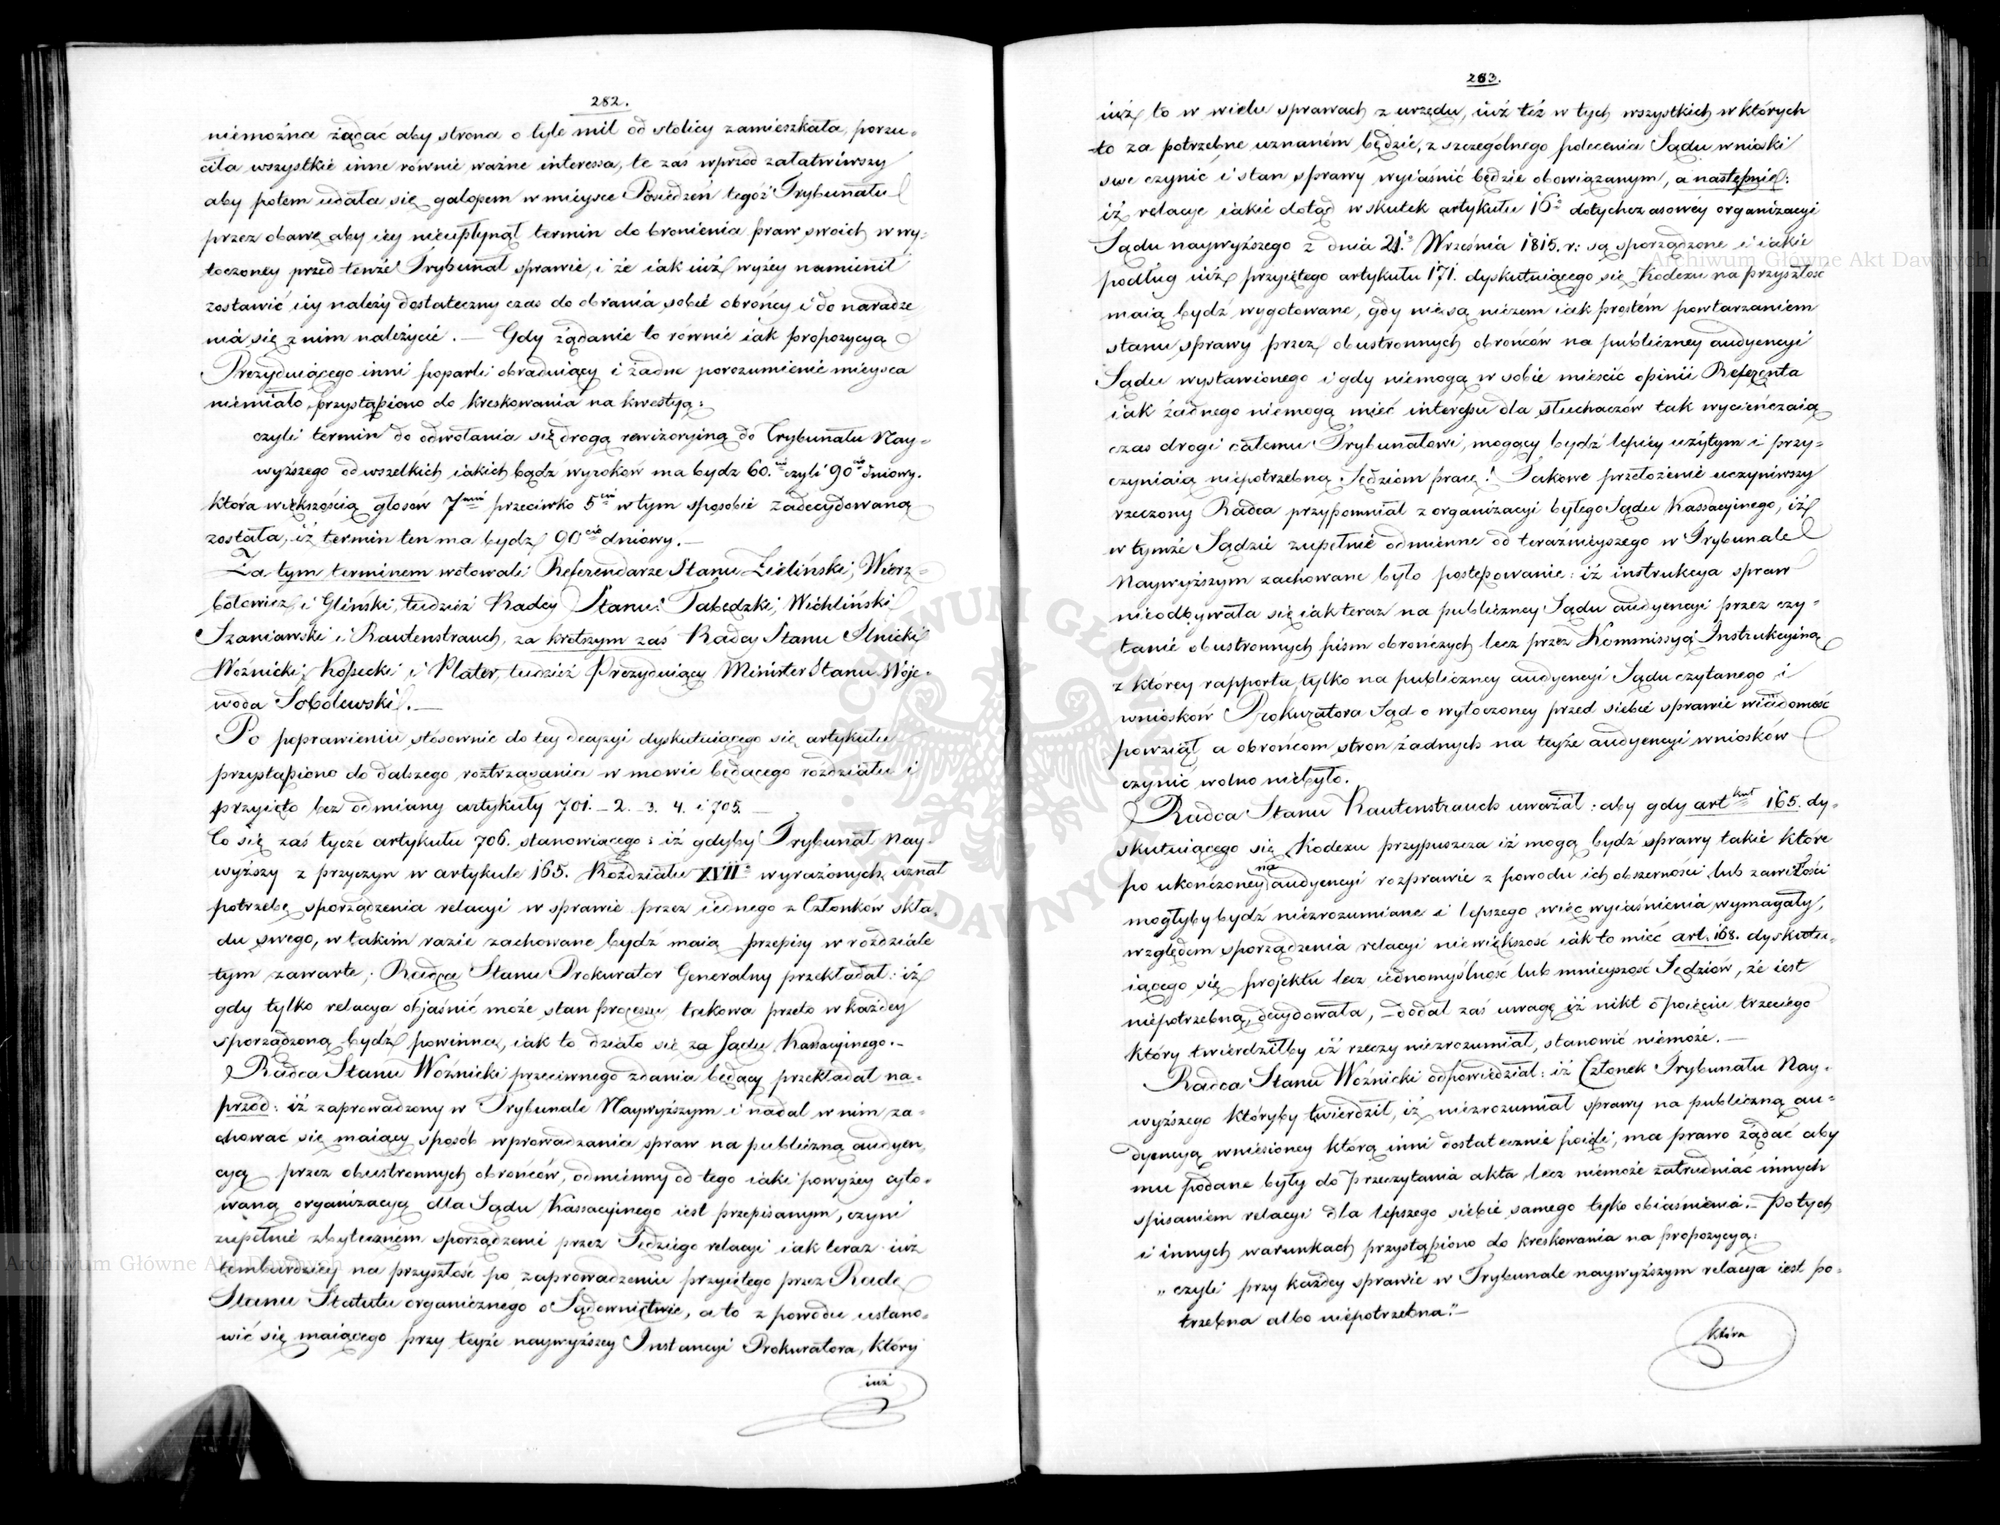 282.
niemożna żądać aby strona o tyle mil od stolicy zamieszkała, porzu-
ciła wszystkie inne równie ważne interessa, te zaś wprzód załatwiwszy
aby potem udała się galopem w mieysce Posiedzeń tegoż Trybunału
przez obawę aby iey nieupłynął termin do bronienia praw swoich w wy-
toczoney przed tenże Trybunał sprawie, i że iak iuż wyżey namienił
zostawić iey należy dostateczny czas do obrania sobie obrońcy i do naradze
nia się z nim należycie. — Gdy żądanie to równie iak propozycyą
Prezyduiącego inni poparli obraduiący i żadne porozumienie mieysca
niemiało, przystąpiono do kreskowania na kwestyą:
czyli termin do odwołania się drogą rewizoryiną do Trybunału Nay-
wyższego od wszelkich iakich bądź wyroków ma bydz 60.cio czyli 90cio dniowy.
która większością głosów 7miu przeciwko 5ciu w tym sposobie zadecydowaną
została, iż termin ten ma bydz 90cio dniowy. —
Za tym terminem wotowali Referendarze Stanu Zieliński, Wierz-
bołowicz, i Gliński, tudzież Radcy Stanu: Tabędzki, Wichliński
Szaniawski i Rautenstrauch, za krótszym zaś Radcy Stanu Ilnicki
Woźnicki, Kossecki i Plater, tudzież Prezyduiący Minister Stanu Woje-
woda Sobolewski. —
Po poprawieniu stósownie do tey decyzyi dyskutuiącego się artykułu
przystąpiono do dalszego roztrząsania w mowie będącego rozdziału i
przyięto bez odmiany artykuły 701. — 2. — 3. 4. i 705. —
Co się zaś tycze artykułu 706. stanowiącego: iż gdyby Trybunał Nay-
wyższy z przyczyn w artykule 165. Rozdziału XVII° wyrażonych uznał
potrzebę sporządzenia relacyi w sprawie przez iednego z Członków skła-
du swego, w takim razie zachowane bydź maią przepisy w rozdziale
tym zawarte; Radca Stanu Prokurator Generalny przekładał: iż
gdy tylko relacya objaśnić może stan processu takowa przeto w każdey
sporządzoną bydź powinna, iak to działo się za Sądu Kassacyinego. —
Radca Stanu Woźnicki przeciwnego zdania będący przekładał na-
przód: iż zaprowadzony w Trybunale Naywyższym i nadal w nim za-
chować się maiący sposób wprowadzania spraw na publiczną audyen-
cyą przez obustronnych obrońców, odmienny od tego iaki powyżey cyto-
waną organizacyą dla Sądu Kassacyinego iest przepisanym, czyni
zupełnie zbytecznem sporządzenie przez Sędziego relacyi iak teraz iuż
tembardziey na przyszłość po zaprowadzeniu przyiętego przez Radę
Stanu Statutu organicznego o Sądownictwie, a to z powodu ustano-
wić się maiącego przy teyże naywyższey Instancyi Prokuratora, który
iuż
283.
iuż to w wielu sprawach z urzędu, iuż też w tych wszystkich w których
to za potrzebne uznaném będzie, z szczególnego polecenia Sądu wnioski
swe czynić i stan sprawy wyiaśnić będzie obowiązanym, a następnie:
iż relacye iakie dotąd w skutek artykułu 16° dotychczasowéy organizacyi
Sądu naywyższego z dnia 21.° Września 1815. r: są sporządzone i iakie
podług iuż przyiętego artykułu 171. dyskutuiącego się Kodexu na przyszłość
maią bydź wygotowane, gdy nie są niczem iak prostém powtarzaniem
stanu sprawy przez obustronnych obrońców na publiczney audyencyi
Sądu wystawionego i gdy niemogą w sobie mieścić opinii Referenta
iak żadnego niemogą mieć interessu dla słuchaczów tak wycieńczaią
czas drogi całemu Trybunałowi, mogący bydź lepiey użytym i przy-
czyniaią niepotrzebną Sędziom pracę! Takowe przełożenie uczyniwszy
rzeczony Radca przypomniał z organizacyi byłego Sądu Kassacyinego, iż
w tymże Sądzie zupełnie odmienne od teraznieyszego w Trybunale
Naywyższym zachowane było postępowanie: iż instrukcya spraw
nieodbywała się iak teraz na publiczney Sądu audyencyi przez czy-
tanie obustronnych pism obrończych lecz przez Kommissyą Instrukcyiną
z którey rapportu, tylko na publiczney audyencyi Sądu czytanego i
wniosków Prokuratora Sąd o wytoczoney przed siebie sprawie wiadomość
powziął a obrońcom stron żadnych na teyże audyencyi wniosków
czynić wolno niebyło.
Radca Stanu Rautenstrauch uważał: aby gdy artkuł 165. dy-
skutuiącego się Kodexu przypuszcza iż mogą bydź sprawy takie które
po ukończoney na audyencyi rozprawie z powodu ich obszerności lub zawiłości
mogłyby bydź niezrozumiane i lepszego więc wyiaśnienia wymagały,
względem sporządzenia relacyi nie większość iak to mieć art. 168. dyskutu-
iącego się projektu lecz iednomyślność lub mnieyszość Sędziów, że iest
niepotrzebną, decydowała, — dodał zaś uwagę iż nikt o poięciu trzeciego
który twierdziłby iż rzeczy niezrozumiał, stanowić niemoże. —
Radca Stanu Woźnicki odpowiedział: iż Członek Trybunału Nay-
wyższego któryby twierdził, iż niezrozumiał sprawy na publiczną au-
dyencyą wniesioney którą inni dostatecznie poięli, ma prawo żądać aby
mu podane były do przeczytania akta lecz niemoże zatrudniać innych
spisaniem relacyi dla lepszego siebie samego tylko obiaśnienia. — Po tych
i innych warunkach przystąpiono do kreskowania na propozycyą:
„czyli przy każdey sprawie w Trybunale naywyższym relacya iest po-
trzebna albo niepotrzebna." —
która
Archiwum Główne Akt Dawnych
Archiwum Główne Akt Dawnych
ARCHIWUM GŁÓWNE AKT DAWNYCH